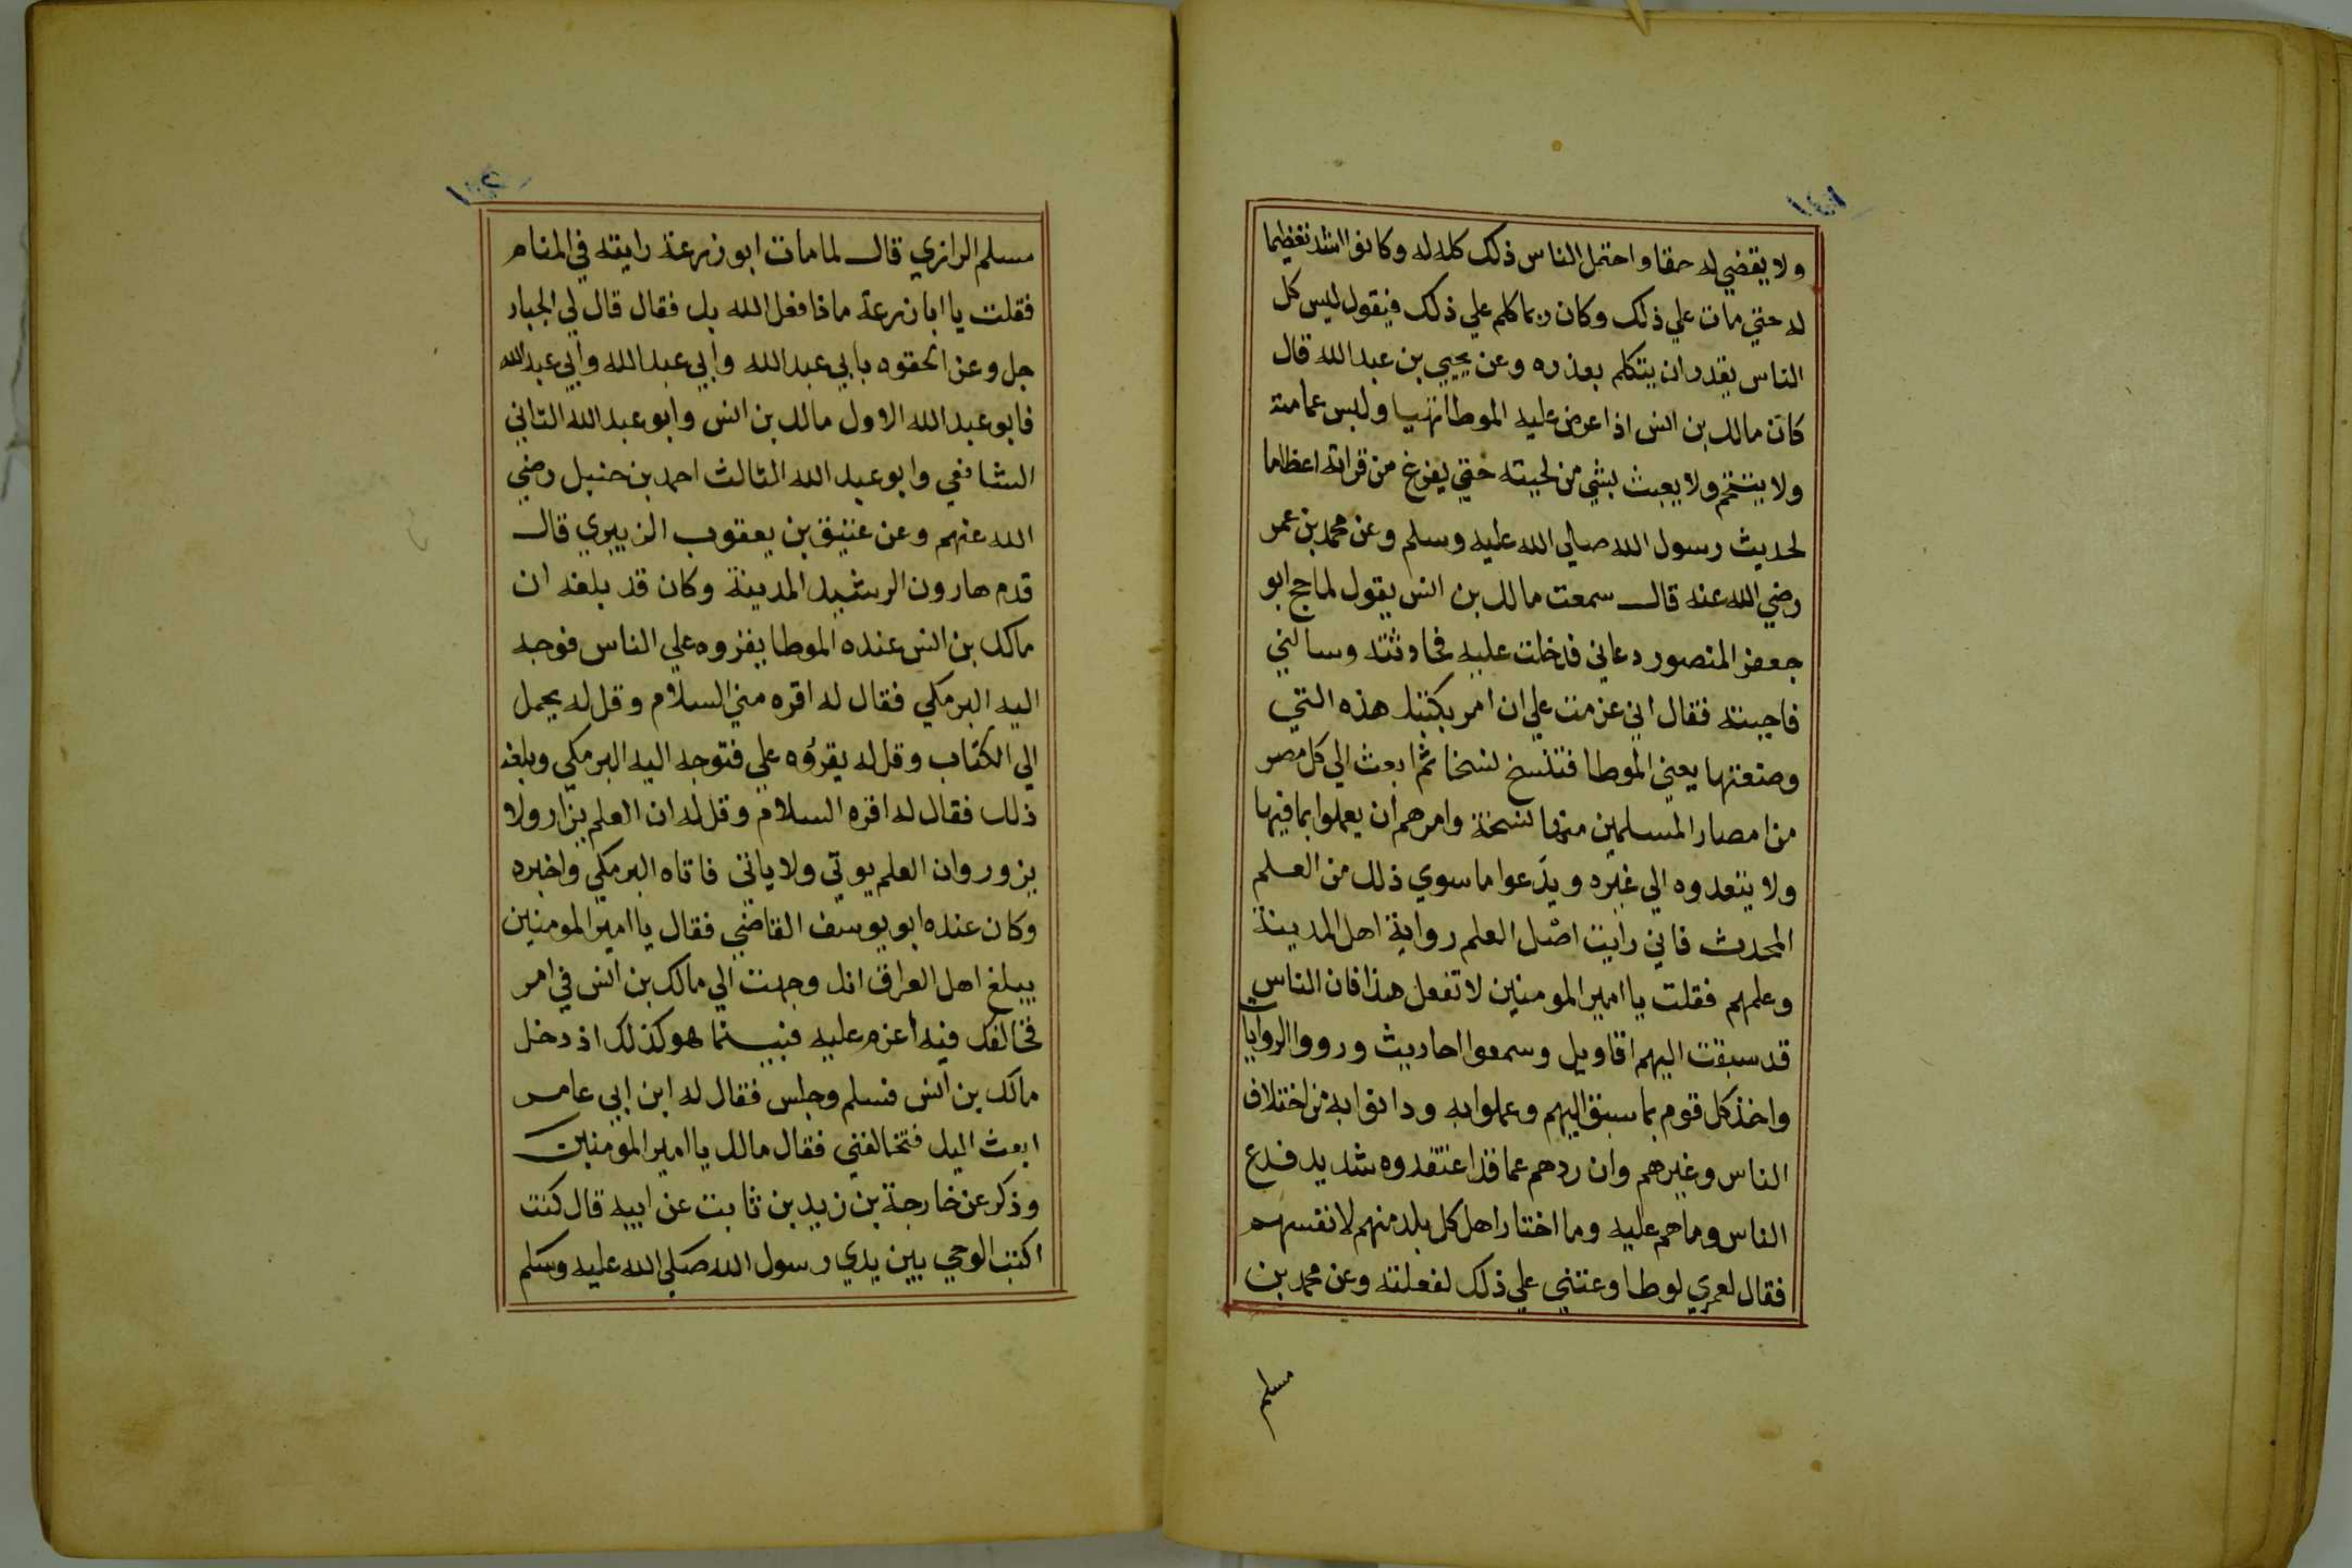 ولا يقضي له حقا واحتمل الناس ذلك كله له وكانوا اشد تعظيما
له حتي مات علي ذلك وكان ربما كلم علي ذلك فيقول ليس كل
الناس يقدر ان يتكلم بعذره وعن يحيي بن عبد الله قال
كان مالك بن انس اذا عرض عليه الموطا تهيا ولبس عمامته
ولا يتنخم ولا يعبث بشي من لحيته حتي يفرغ من قراته اعظاما
لحديث رسول الله صلي الله عليه وسلم وعن محمد بن عمر
رضي الله عنه قال سمعت مالك بن انس يقول لما حج ابو
جعفر المنصور دعاني فدخلت عليه فحادثته وسالني
فاجبته فقال اني عزمت علي ان امر بكتبك هذه التي
وضعتها يعني الموطا فتنسخ نسخا ثم ابعث الي كل مصر
من امصار المسلمين منها نسخة وامرهم ان يعملوا بما فيها
ولا يتعدوه الي غيره ويدعوا ما سوي ذلك من العلم
المحدث فاني رايت اصل العلم رواية اهل المدينة
وعلمهم فقلت يا امير المومنين لا تفعل هذا فان الناس
قد سبقت اليهم اقاويل وسمعوا احاديث ورووا الروايات
واخذ كل قوم بما سبق اليهم وعملوا به ودانوا به من اختلاف
الناس وغيرهم وان ردهم عما قد اعتقدوه شديد فدع
الناس وما هم عليه وما اختار اهل كل بلد منهم لانفسهم
فقال لعمري لو طاوعتني علي ذلك لفعلته وعن محمد بن
مسلم
مسلم الرازي قال لما مات ابو زرعة رايته في المنام
فقلت يا ابا زرعة ماذا فعل الله بك فقال قال لي الجبار
جل وعن الحقوه بابي عبد الله وابي عبد الله وابي عبد الله
فابو عبد الله الاول مالك بن انس وابو عبد الله الثاني
الشافعي وابو عبد الله الثالث احمد بن حنبل رضي
الله عنهم وعن عتيق بن يعقوب الزبيري قال
قدم هارون الرشيد المدينة وكان قد بلغه ان
مالك بن انس عنده الموطا يقروه علي الناس فوجه
اليه البرمكي فقال له اقره مني السلام وقل له يحمل
الي الكتاب وقل له يقرؤه علي فتوجه اليه البرمكي وبلغه
ذلك فقال له اقره السلام وقل له ان العلم يزار ولا
يزور وان العلم يوتي ولا ياتي فاتاه البرمكي واخبره
وكان عنده ابو يوسف القاضي فقال يا امير المومنين
يبلغ اهل العراق انك وجهت الي مالك بن انس في امر
فخالفك فيه اعزم عليه فبينما هو كذلك اذ دخل
مالك بن انس فسلم وجلس فقال له ابن ابي عامر
ابعث اليك فتخالفني فقال مالك يا امير المومنين
وذكر عن خارجة بن زيد بن ثابت عن ابيه قال كنت
اكتب الوحي بين يدي رسول الله صلي الله عليه وسلم